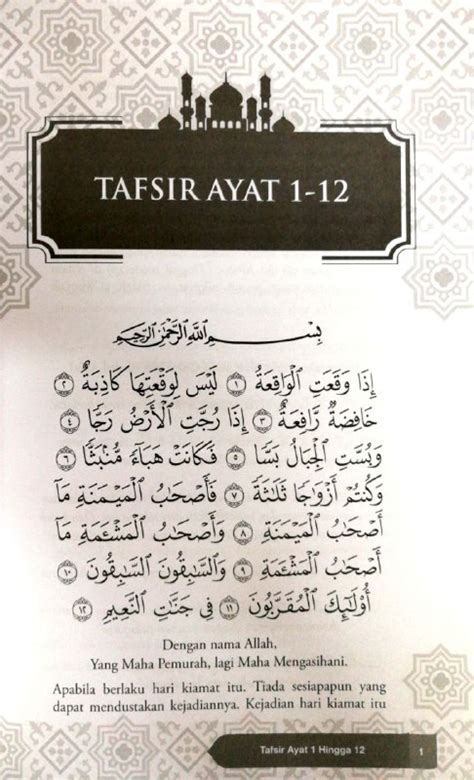 TAFSIR AYAT 1-12
بِسْمِ اللَّهِ الرَّحْمَٰنِ الرَّحِيمِ
إِذَا وَقَعَتِ ٱلْوَاقِعَةُ ١ لَيْسَ لِوَقْعَتِهَا كَاذِبَةٌ ٢
خَافِضَةٌ رَّافِعَةٌ ٣ إِذَا رُجَّتِ ٱلْأَرْضُ رَجًّا ٤
وَبُسَّتِ ٱلْجِبَالُ بَسًّا ٥ فَكَانَتْ هَبَآءً مُّنۢبَثًّا ٦
وَكُنتُمْ أَزْوَٰجًا ثَلَٰثَةً ٧ فَأَصْحَٰبُ ٱلْمَيْمَنَةِ مَآ
أَصْحَٰبُ ٱلْمَيْمَنَةِ ٨ وَأَصْحَٰبُ ٱلْمَشْـَٔمَةِ مَآ
أَصْحَٰبُ ٱلْمَشْـَٔمَةِ ٩ وَٱلسَّٰبِقُونَ ٱلسَّٰبِقُونَ ١٠
أُو۟لَٰٓئِكَ ٱلْمُقَرَّبُونَ ١١ فِى جَنَّٰتِ ٱلنَّعِيمِ ١٢
Dengan nama Allah,
Yang Maha Pemurah, lagi Maha Mengasihani.
Apabila berlaku hari kiamat itu. Tiada sesiapapun yang
dapat mendustakan kejadiannya. Kejadian hari kiamat itu
Tafsir Ayat 1 Hingga 12 1